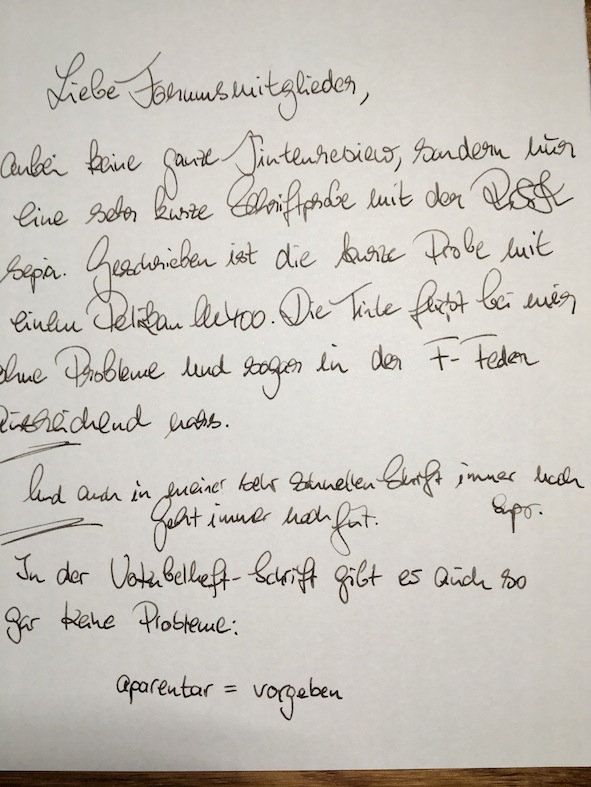 Liebe Forumsmitglieder,
anbei keine ganze Tintenreview, sondern nur
eine sehr kurze Schriftprobe mit der R&K
sepia. Geschrieben ist die kurze Probe mit
einem Pelikan M400. Die Tinte fließt bei mir
ohne Probleme und sogar in der F-Feder
ausreichend nass.
Und auch in meiner sehr schnellen Schrift immer noch
Geht immer noch gut.
In der Vokabelheft-Schrift gibt es auch so
gar keine Probleme:
aparentar = vorgeben